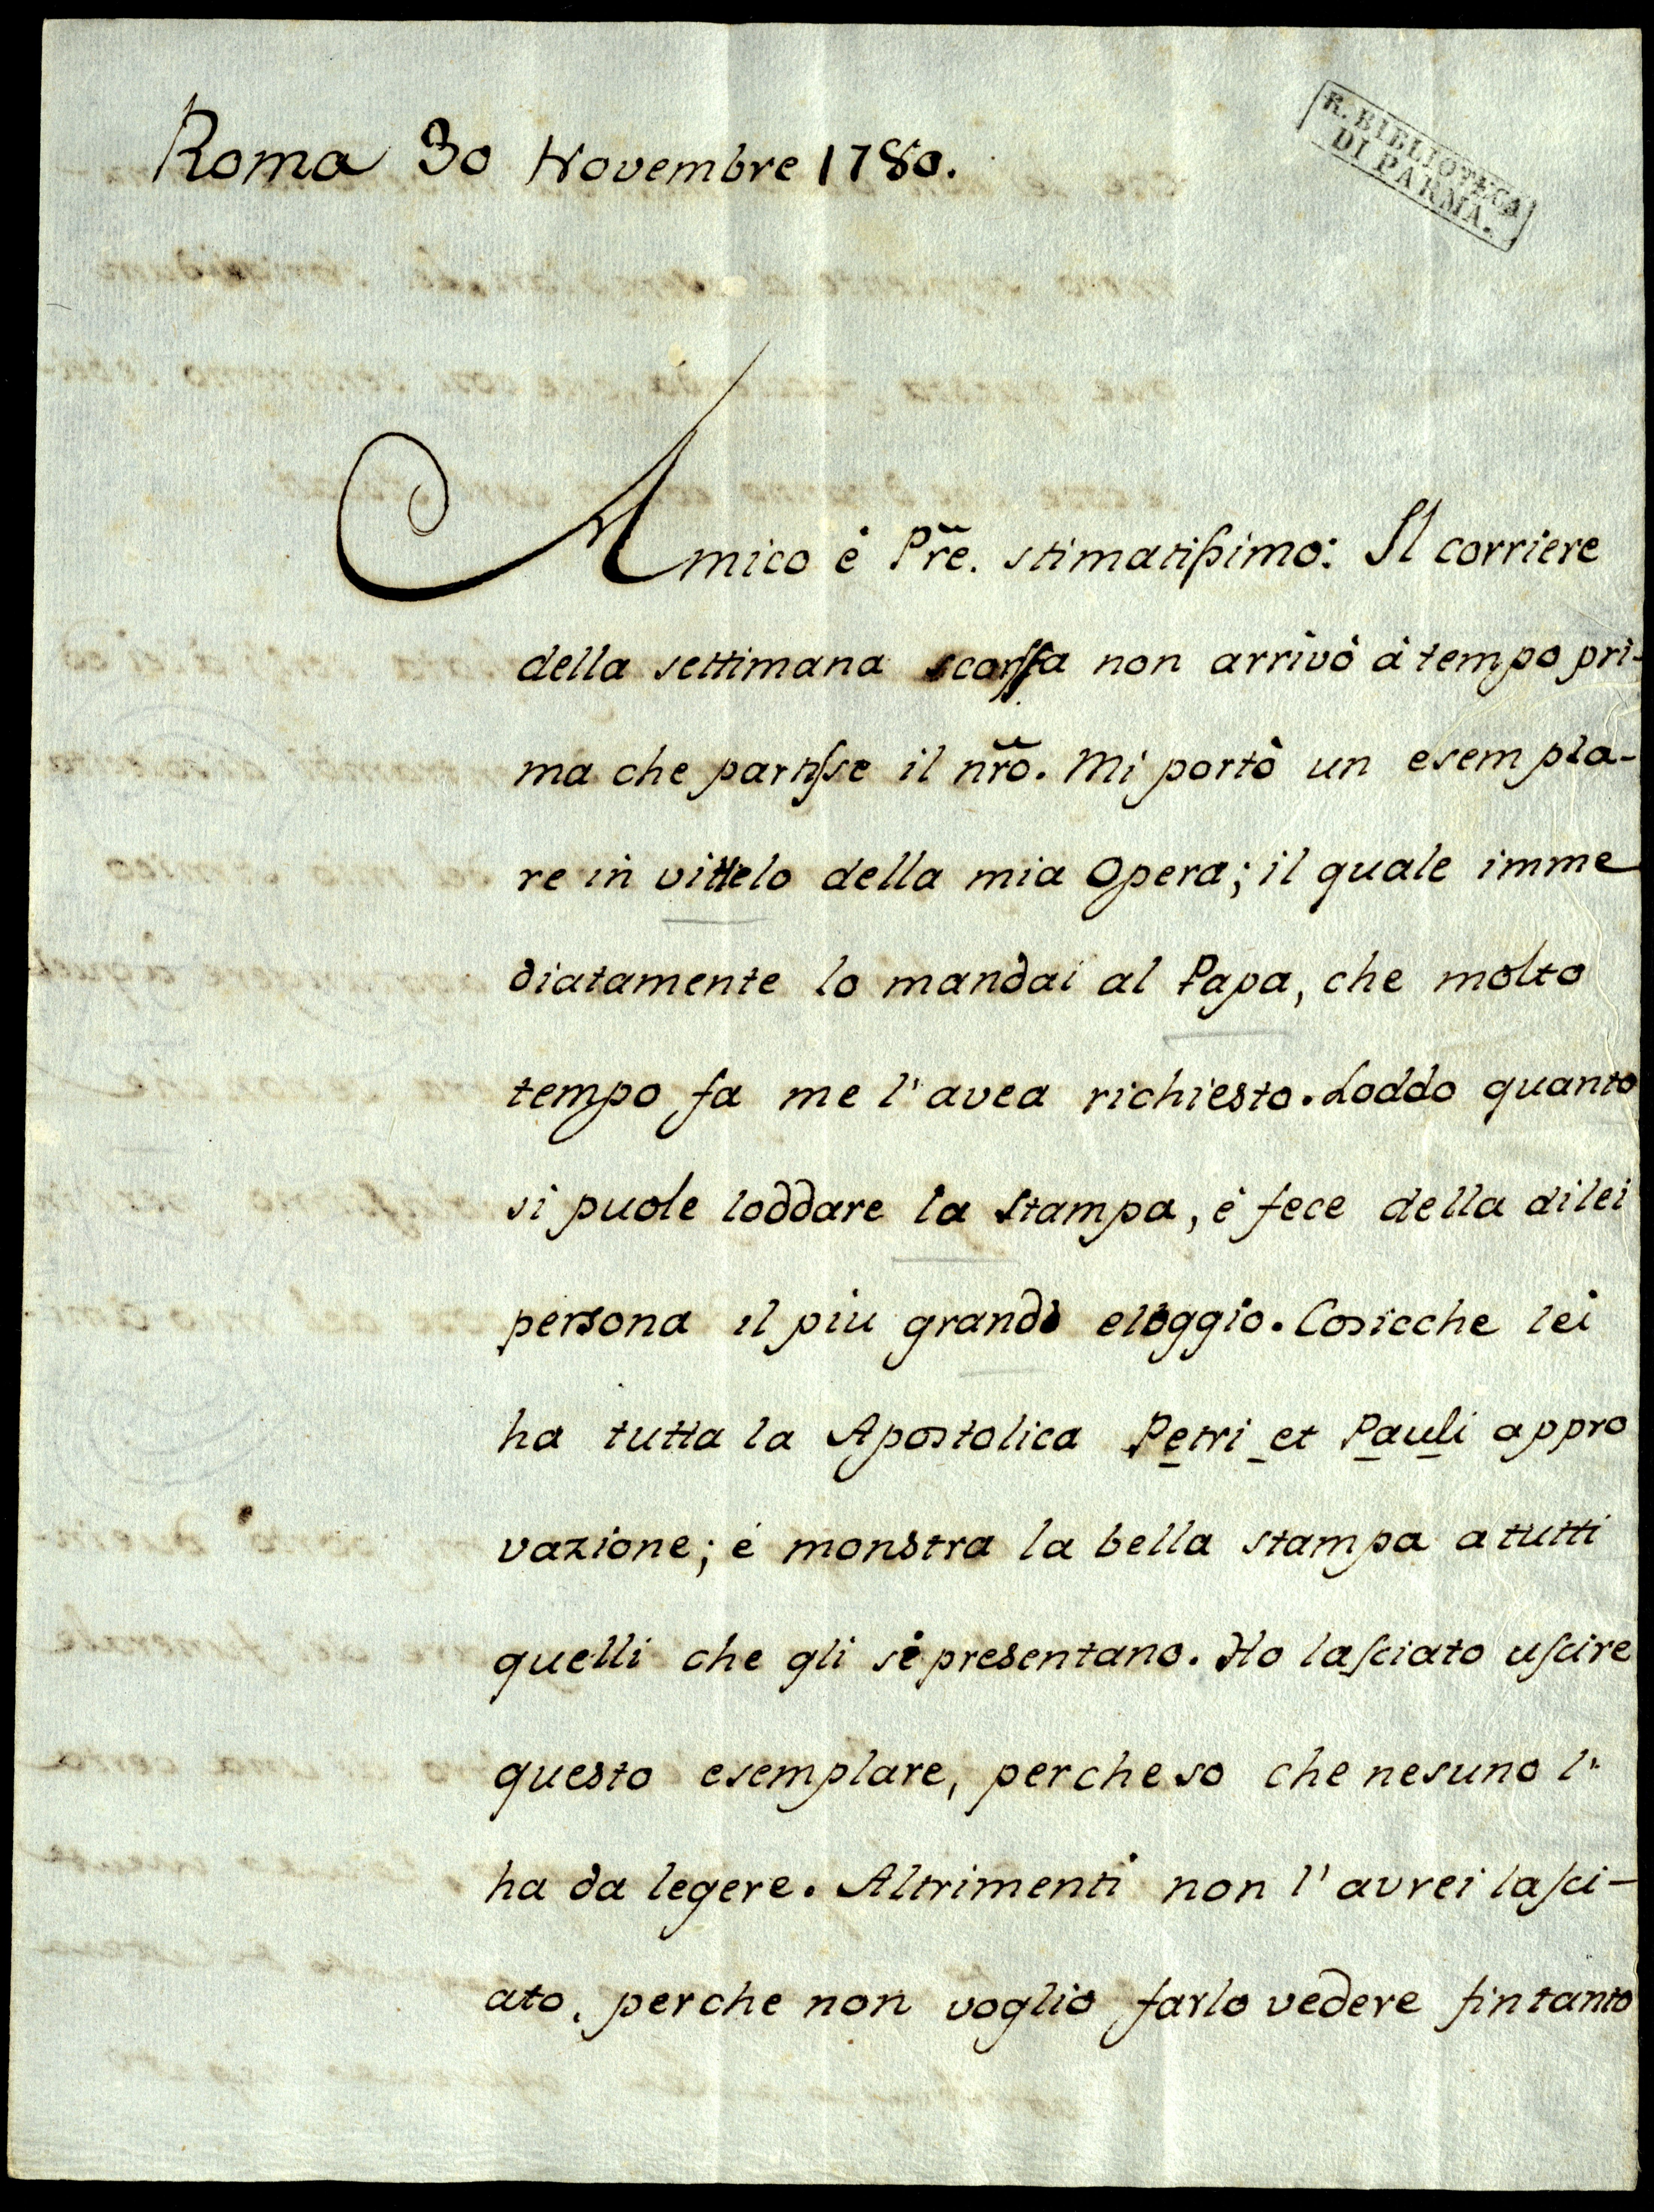 Roma 30 Novembre 1780.
R. BIBLIOTECA
DI PARMA.
Amico è Pr̃e. stimatiſsimo: Il corriere
della settimana scorſsa non arrivò à tempo pri-
ma che partiſse il nr̃o. Mi portò un esempla-
re in vittelo della mia Opera; il quale imme
diatamente lo mandai al Papa, che molto
tempo fa me l'avea richiesto. Loddo quanto
si puole loddare la stampa, è fece della di lei
persona il piu grande eloggio. Cosicche lei
ha tutta la Apostolica Petri et Pauli appro
vazione; é monstra la bella stampa a tutti
quelli che gli si presentano. Ho laſciato uſcire
questo esemplare, perche so che nesuno l'
ha da legere. Altrimenti non l'avrei laſci-
ato, perche non voglio farlo vedere fin tanto